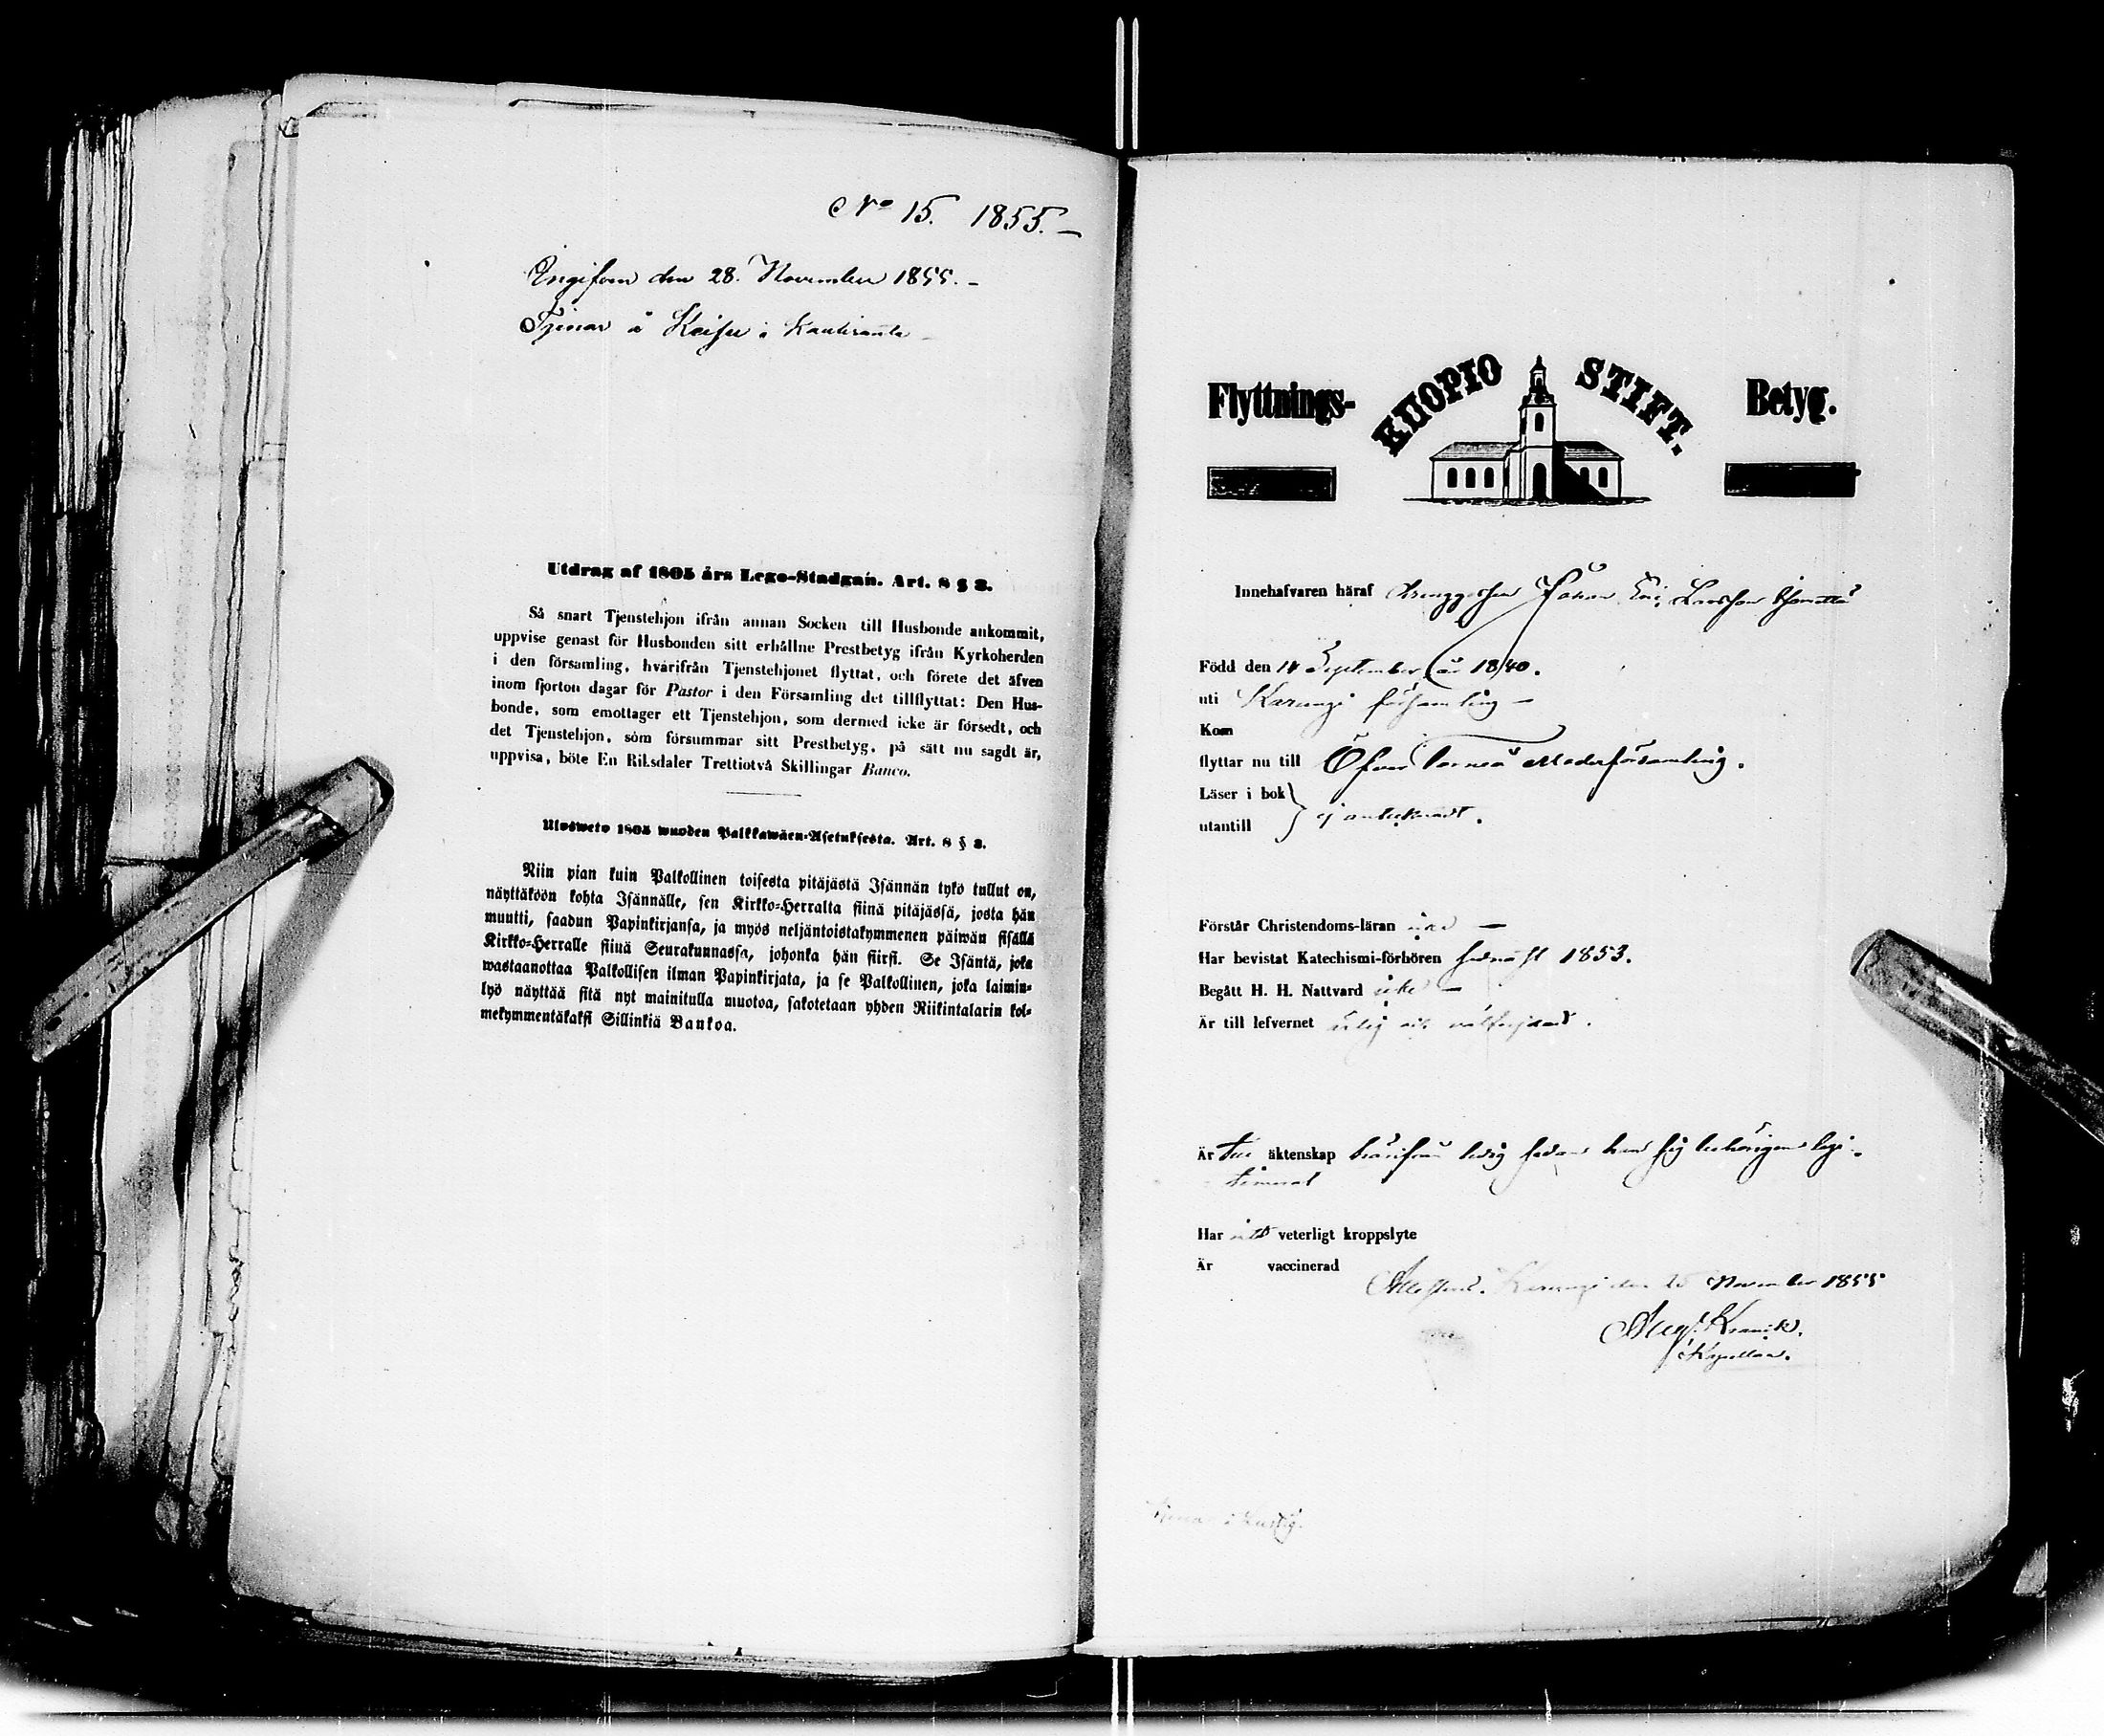 No 15. 1855. –
Ingifven den 28. November 1855. –
Tjenar å Keisu i Kauliranta
Utdrag af 1805 års Lego-Stadgan. Art. 8 § 3.
Så snart Tjenstehjon ifrån annan Socken till Husbonde ankommit,
uppvise genast för Husbonden sitt erhållne Prestbetyg ifrån Kyrkoherden
i den församling, hvarifrån Tjenstehjonet flyttat, och förete det äfven
inom fjorton dagar för Pastor i den Församling det tillflyttat: Den Hus-
bonde, som emottager ett Tjenstehjon, som dermed icke är försedt, och
det Tjenstehjon, som försummar sitt Prestbetyg, på sätt nu sagdt är,
uppvisa, böte En Riksdaler Trettiotvå Skillingar Banco.
Ulosweto 1805 wuoden Palkkawäen-Asetuksesta. Art. 8 § 3.
Niin pian kuin Palkollinen toisesta pitäjästä Isännän tykö tullut on,
näyttäköön kohta Isännälle, sen Kirkko-Herralta siinä pitäjässä, josta hän
muutti, saadun Papinkirjansa, ja myös neljäntoistakymmenen päiwän sisällä
Kirkko-Herralle siinä Seurakunnassa, johonka hän siirsi. Se Isäntä, joka
wastaanottaa Palkollisen ilman Papinkirjata, ja se Palkollinen, joka laimin-
lyö näyttää sitä nyt mainitulla muotoa, sakotetaan yhden Riikintalarin kol-
mekymmentäkaksi Sillinkiä Bankoa.
Flyttnings- KUOPIO STIFT. Betyg.
Innehafvaren häraf Drenggossen Johan Eric Larsson
Född den 14 September år 1840.
uti Karungi församling –
Kom
flyttar nu till Öfver Torneå Moderförsamling.
Läser i bok
utantill } ej antecknadt.
Förstår Christendoms-läran
Har bevistat Katechismi-förhören sednast 1853.
Begått H. H. Nattvard icke –
Är till lefvernet ärlig och välfrejdad.
Är till äktenskap härifrån ledig sedan han sig behörigen legi-
timerat
Har intet veterligt kroppslyte
Är vaccinerad
Attesterar. Karungi den November 1855
Aug. 
Kapellan.
Tjenar i